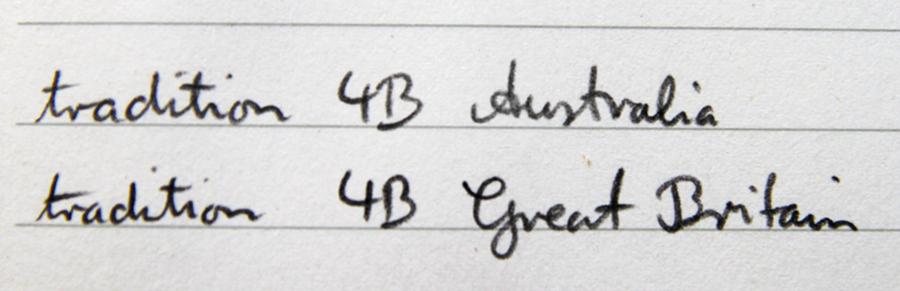 tradition 4B Australia
tradition 4B Great Britain